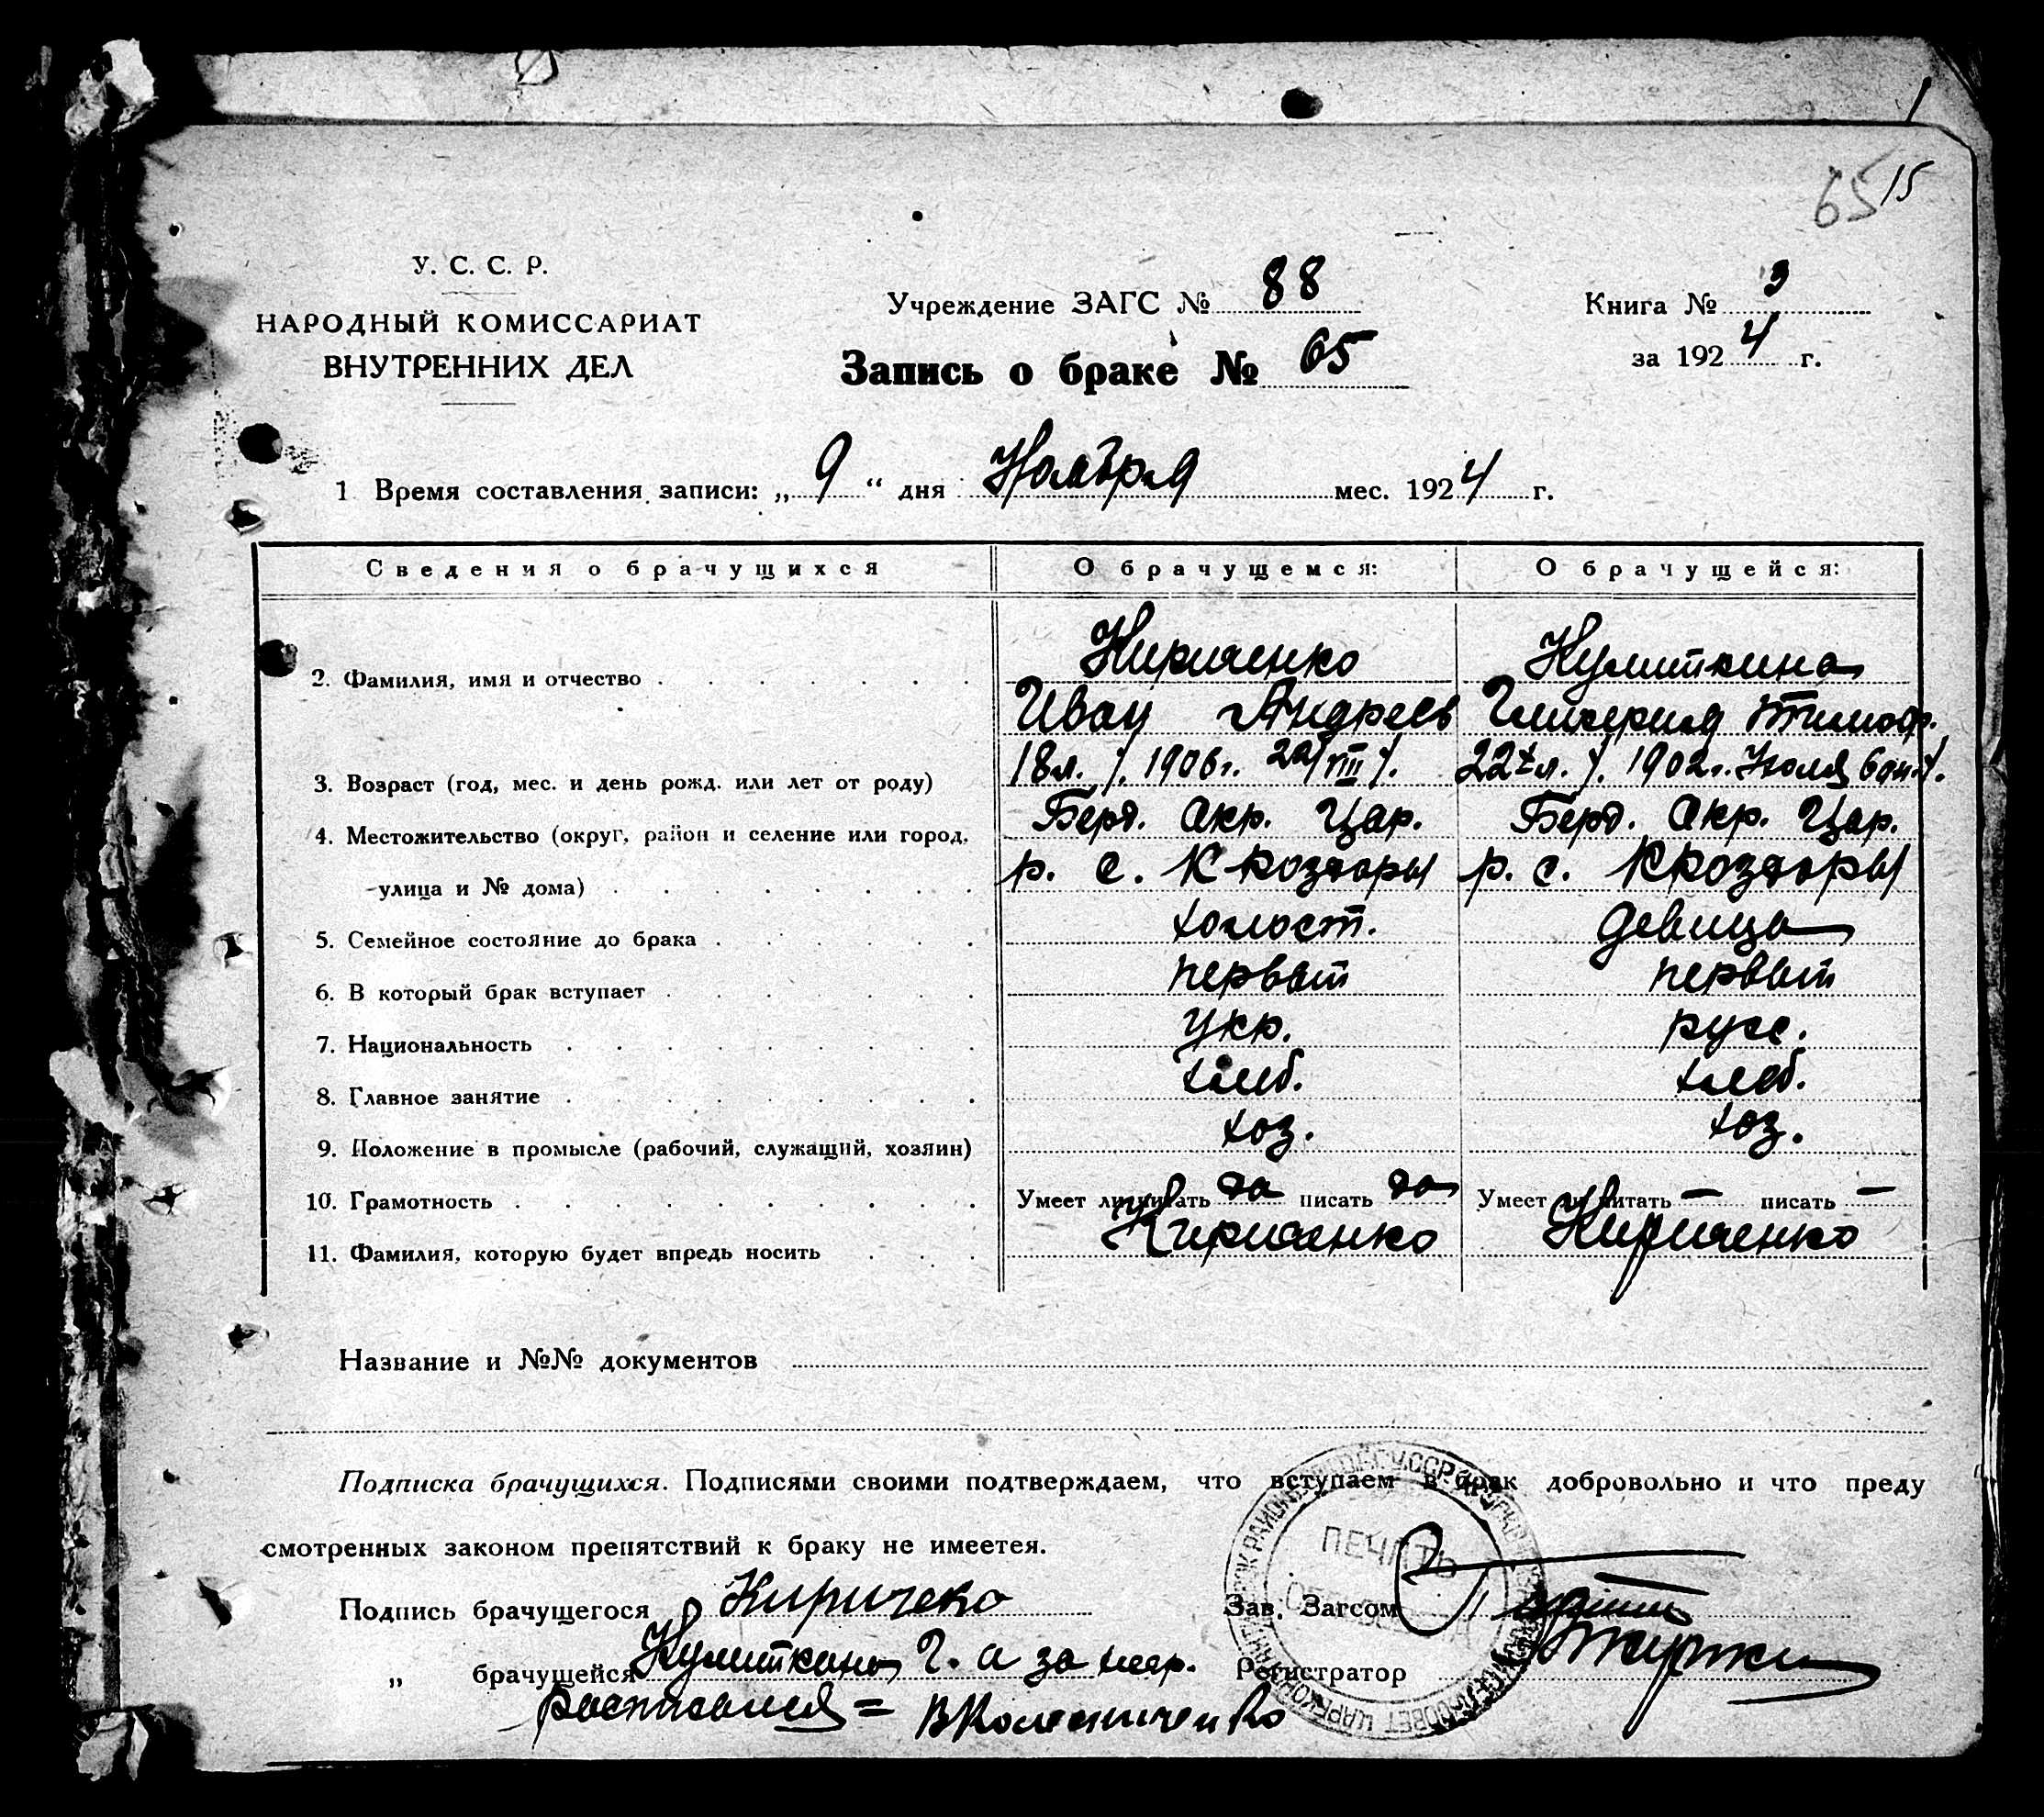 1
65 15
У. С. С. Р.
НАРОДНЫЙ КОМИССАРИАТ
ВНУТРЕННИХ ДЕЛ
Учреждение ЗАГС № 88
Книга № 3
за 1924 г.
Запись о браке № 65
1 Время составления записи: „ 9 “ дня Ноября мес. 1924 г.
Сведения о брачущихся О брачущемся: О брачущейся:
2. Фамилия, имя и отчество Кириченко Кулиткина
Иван Андреев Гликерия Тимоф.
3. Возраст (год, мес. и день рожд. или лет от роду) 18 л. 1906 г. 22 л. 1902 г. Июля 6 дн.
4. Местожительство (округ, район и селение или город, Берд. окр. Цар. Берд. окр. Цар.
улица и № дома) р. с. К Роздоры р. с. К Роздоры
5. Семейное состояние до брака холост. девица
6. В который брак вступает первый первый
7. Национальность укр. русс.
8. Главное занятие хлеб. хлеб.
9. Положение в промысле (рабочий, служащий, хозяин) хоз. хоз.
10. Грамотность Умеет ли читать да писать да Умеет ли читать — писать —
11. Фамилия, которую будет впредь носить Кириченко Кириченко
Название и №№ документов
Подписка брачущихся. Подписями своими подтверждаем, что вступаем в брак добровольно и что преду
смотренных законом препятствий к браку не имеетея.
ПЕЧАТЬ
Подпись брачущегося Киричеко Зав. Загсом
„ брачущейся Кулиткина Г. а за негр. Регистратор
расписался = В Колесниченко